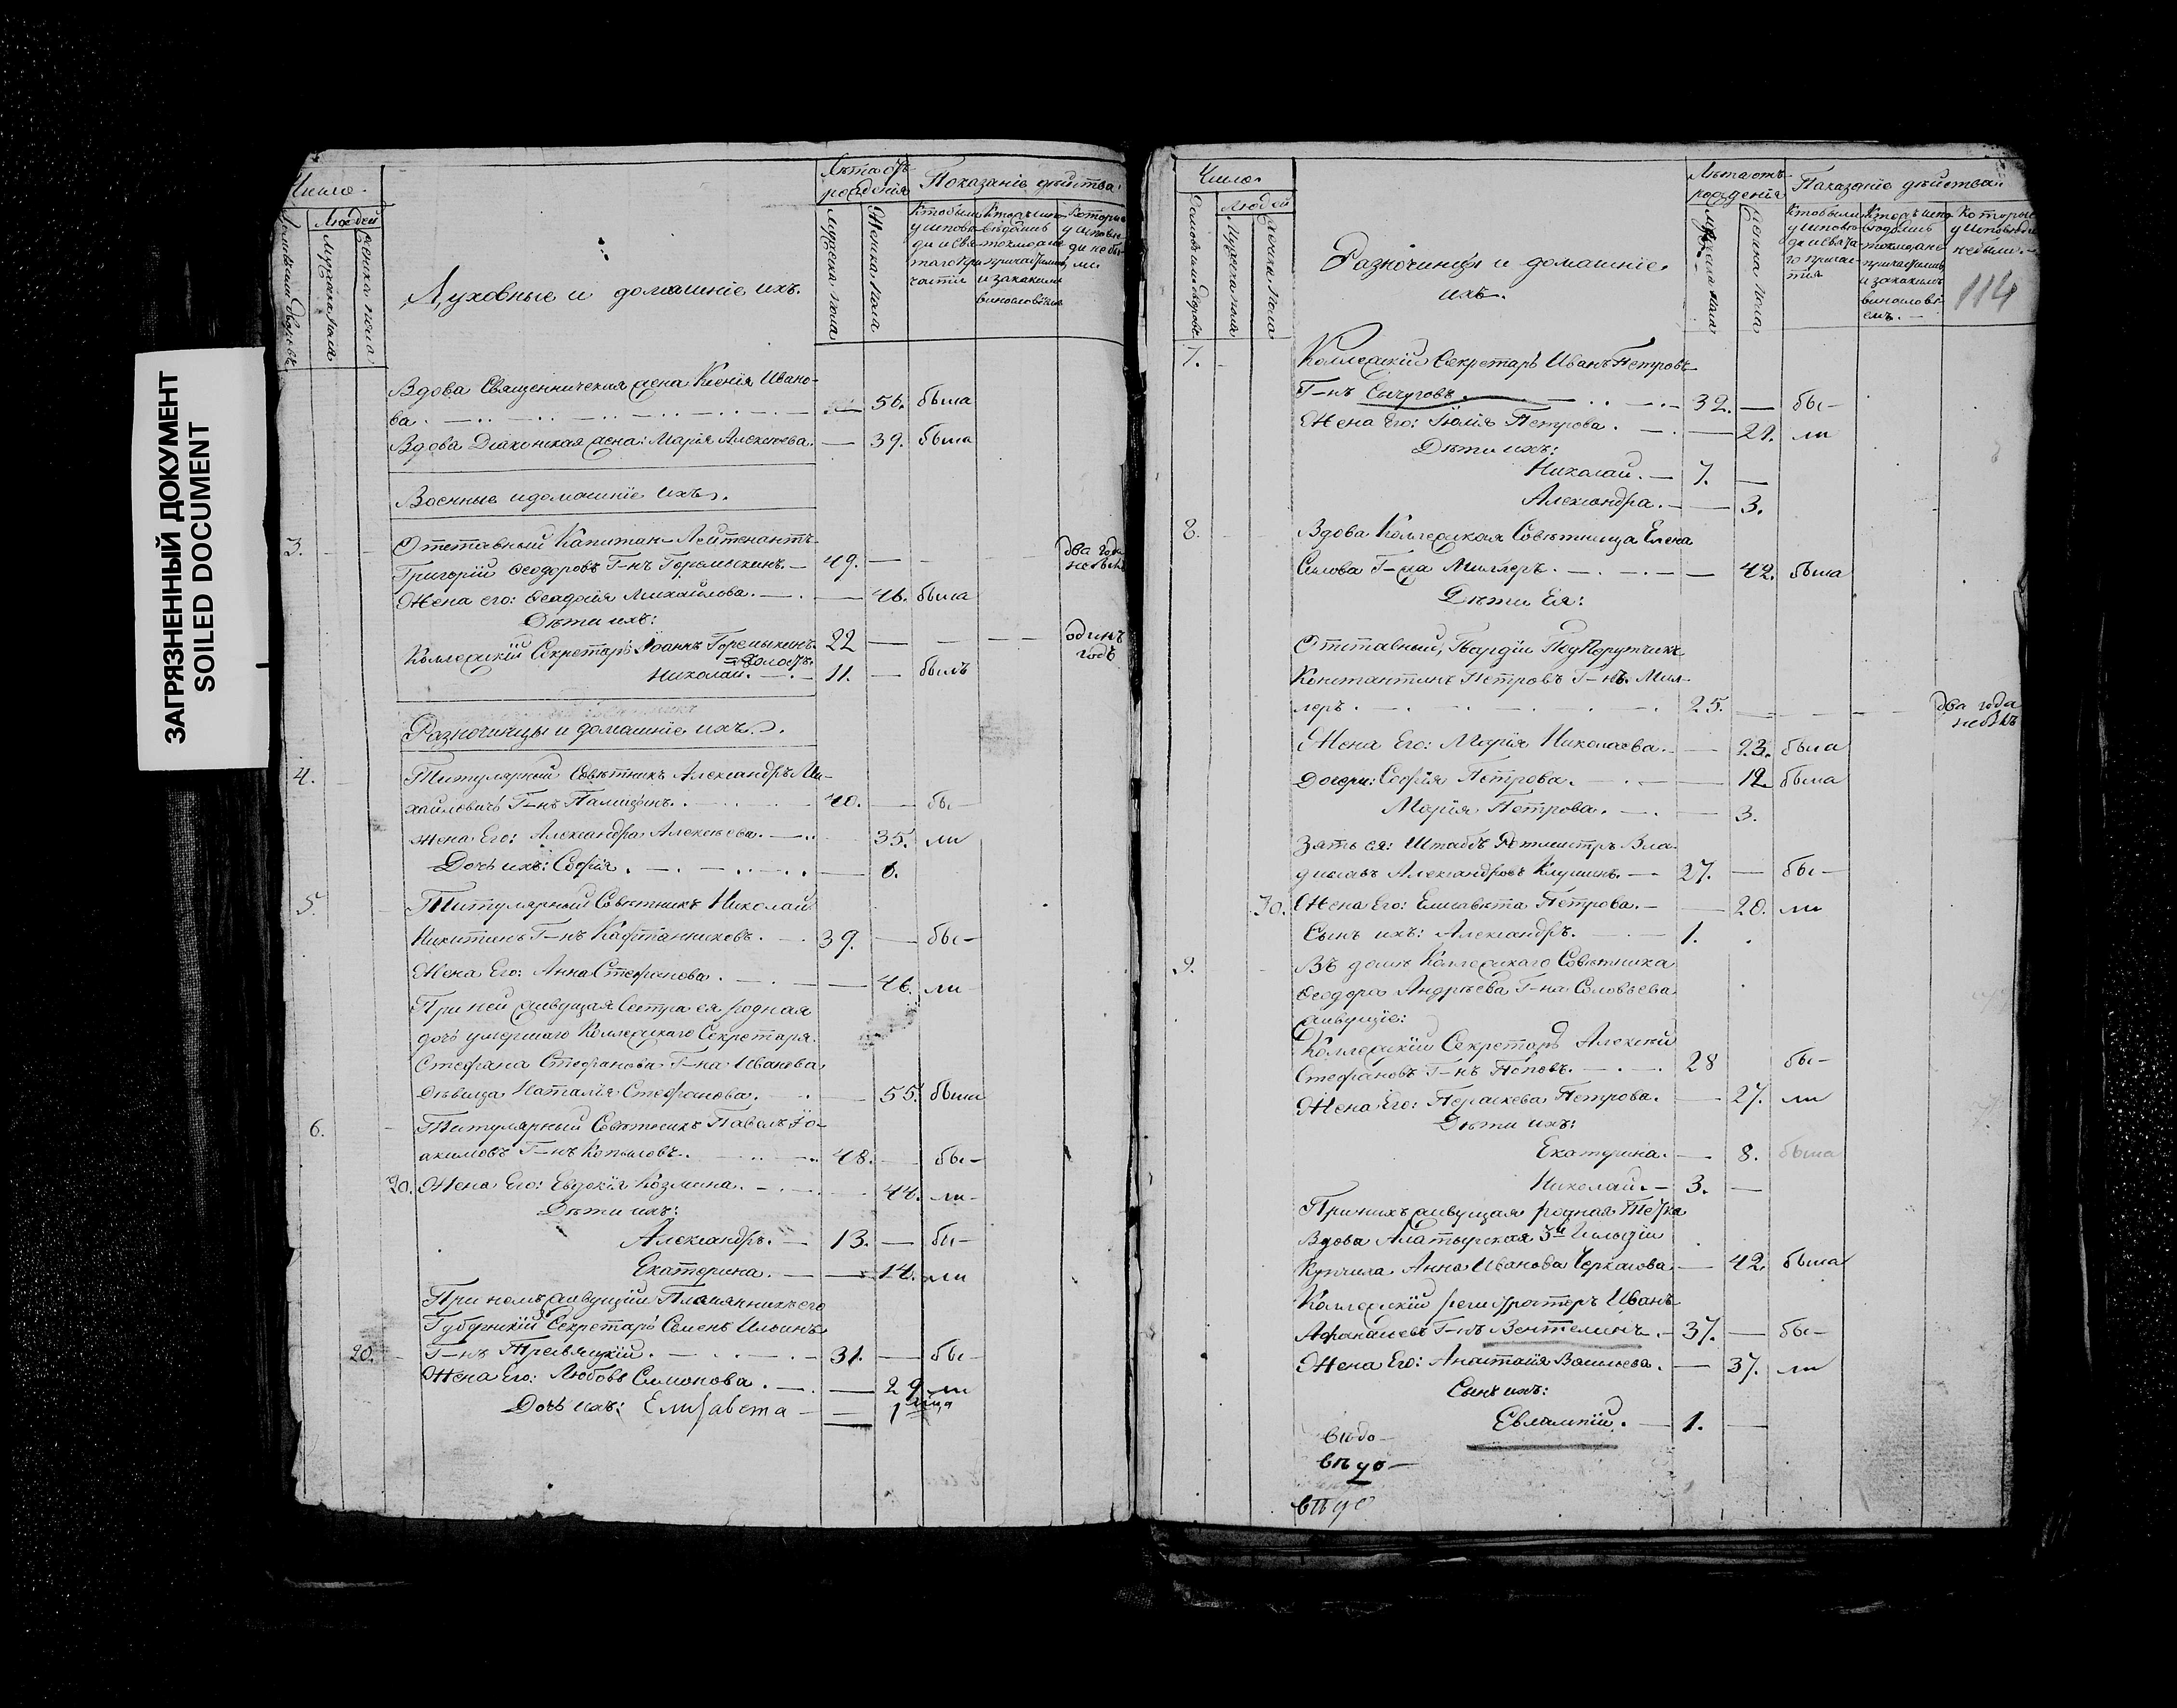 ЗАГРЯЗНЕННЫЙ ДОКУМЕНТ
SOILED DOCUMENT
Число.
Людей
Мужеска пола
Женска пола
Духовные и домашніе ихъ.
Лѣта отъ рожденія
Мужеска пола
Женска пола
Показаніе дѣйства.
Вдова Священническая жена Ксенія Ивано-
ва. 56. была
Вдова Діаконская жена: Марія Алексѣева. — 39. была
Военные и домашніе ихъ.
3. Отставный Капитан-Лейтенантъ
Григорій Ѳеодоровъ Г-нъ Горемыкинъ. — 49. — два года не былъ
Жена его: Ѳеодосія Михайлова. — 46. была
Дѣти ихъ:
Коллежскій Секретарь Іоаннъ Горемыкинъ 22 — одинъ годъ
Николай. — 11. — былъ
Разночинцы и домашніе ихъ.
4. Титулярный Совѣтникъ Александръ Ми-
хайловичъ Г-нъ 40. — бы-
Жена Его: Александра Алексѣева. — 35. ли
Дочь ихъ: Софія. — 6.
5. Титулярный Совѣтникъ Николай
Никитинъ Г-нъ Кафтанниковъ. 39. — бы-
Жена Его: Анна Стефанова. — 46. ли
При ней живущая Сестра ея родная
дочь умершаго Коллежскаго Секретаря
Стефана Стефанова Г-на Иванова
Дѣвица Наталія Стефанова. — 55. была
6. Титулярный Совѣтникъ Павелъ Іо-
акимовъ Г-нъ Копыловъ. 48. — бы-
Жена Его: Евдокія Козмина. — 44. ли
Дѣти ихъ:
Александръ. — 13. — бы-
Екатерина. — 14. ли
При немъ живущій Племянникъ его
Губернскій Секретарь Семенъ Ильинъ
20. Г-нъ 31. — бы-
Жена Его: Любовь Симонова. — 29 ли
Дочь ихъ: Елизавета — 1
Число.
Людей
Мужеска пола
Женска пола
Разночинцы и домашніе
ихъ.
Лѣта отъ рожденія
Мужеска пола
Женска пола
Показаніе дѣйства.
114
7. Коллежскій Секретарь Иванъ Петровъ
Г-нъ Сычуговъ. 32. — бы-
Жена Его: Юлія Петрова. — 21. ли
Дѣти ихъ:
Николай. — 7. —
Александра. — 3.
8. Вдова Коллежская Совѣтница Елена
Силова Г-жа Миллеръ. — 42. была
Дѣти Ея:
Отставный, Гвардіи ПодПорутчикъ
Константинъ Петровъ Г-нъ Мил-
леръ. 25. — два года не былъ
Жена Его: Марія Николаева. — 23. была
Дочери: Софія Петрова. — 12. была
Марія Петрова. — 3.
Зять ея: Штабъ Ротмистръ Вла-
диславъ Александровъ 27. — бы-
Жена Его: Елисавета Петрова. — 20. ли
Сынъ ихъ: Александръ. — 1.
9. Въ домѣ Коллежскаго Совѣтника
Ѳеодора Андрѣева Г-на Соловьева
живущіе:
Коллежскій Секретарь Алексѣй
Стефановъ Г-нъ Поповъ. 28 бы-
Жена Его: Параскева Петрова. — 27. ли
Дѣти ихъ:
Екатерина. — 8. была
Николай. — 3. —
При нихъ живущая родная Тетка
Вдова Алатырская 3й Гильдіи
Купчиха Анна Иванова Черкасова — 42. была
Коллежскій регистраторъ Иванъ
Афанасьевъ Г-нъ Вентелинъ. — 37. — бы-
Жена Его: Анастасія Васильева. — 37. ли
Сынъ ихъ:
Евлампій. — 1. —